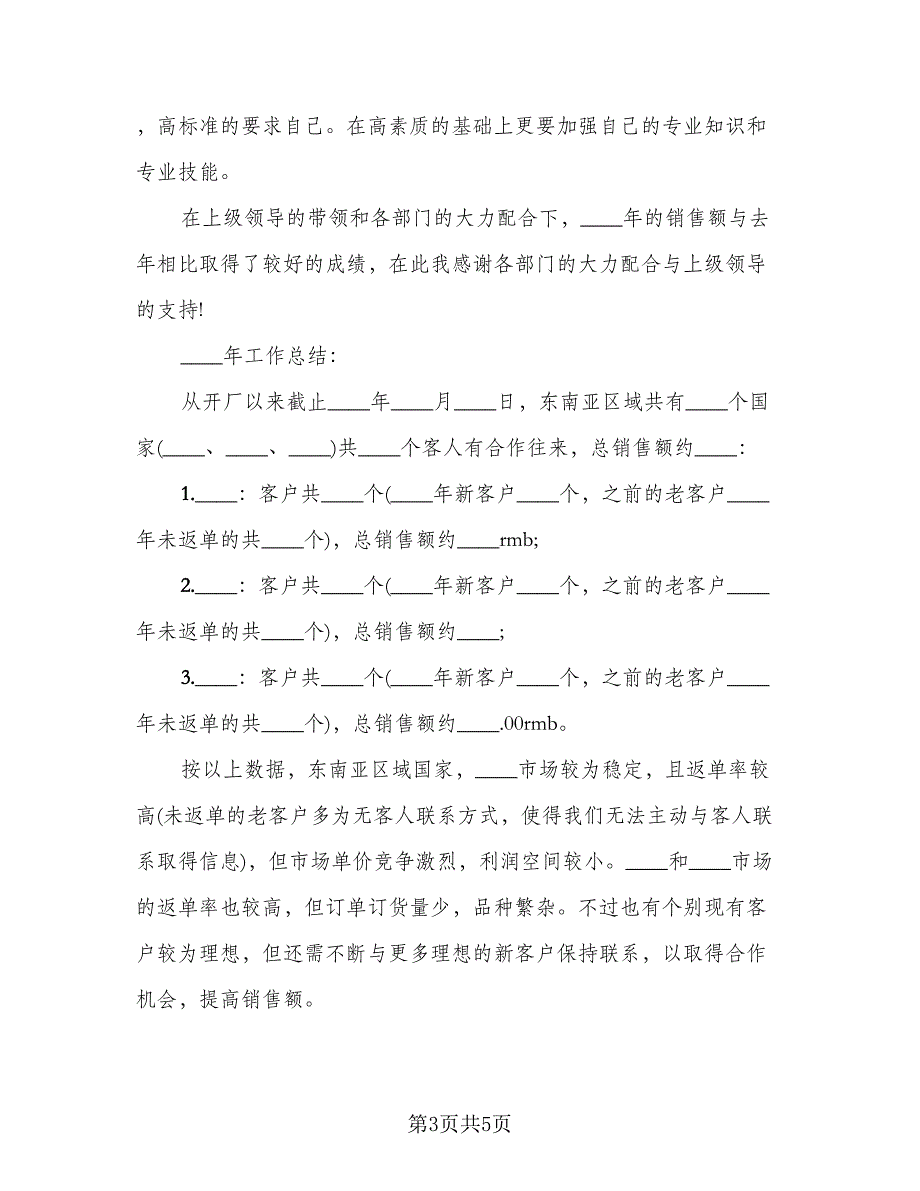 ，高标准的要求自己。在高素质的基础上更要加强自己的专业知识和
专业技能。
在上级领导的带领和各部门的大力配合下，____年的销售额与去
年相比取得了较好的成绩，在此我感谢各部门的大力配合与上级领导
的支持!
____年工作总结：
从开厂以来截止____年____月____日，东南亚区域共有____个国
家(____、____、____)共____个客人有合作往来，总销售额约____：
1.____：客户共____个(____年新客户____个，之前的老客户____
年未返单的共____个)，总销售额约____rmb;
2.____：客户共____个(____年新客户____个，之前的老客户____
年未返单的共____个)，总销售额约____;
3.____：客户共____个(____年新客户____个，之前的老客户____
年未返单的共____个)，总销售额约____.00rmb。
按以上数据，东南亚区域国家，____市场较为稳定，且返单率较
高(未返单的老客户多为无客人联系方式，使得我们无法主动与客人联
系取得信息)，但市场单价竞争激烈，利润空间较小。____和____市场
的返单率也较高，但订单订货量少，品种繁杂。不过也有个别现有客
户较为理想，但还需不断与更多理想的新客户保持联系，以取得合作
机会，提高销售额。
第3页共5页